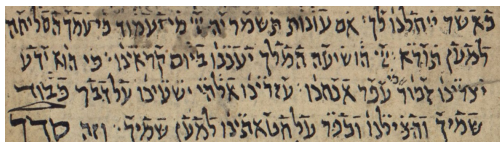 כאשר ייחלנו לך׃ אם עונות תשמר יה יי מי יעמוד כי עמך הסליחה
למען תורא׃ יי הושיעה המלך יעננו ביום קראנו׃ כי הוא ידע
יצרינו זכור כי עפר אנחנו׃ עזרינו אלהי ישעינו על דבר כבוד
שמיך והצילנו וכפר על חטאתינו למען שמיך׃ וזה סדר